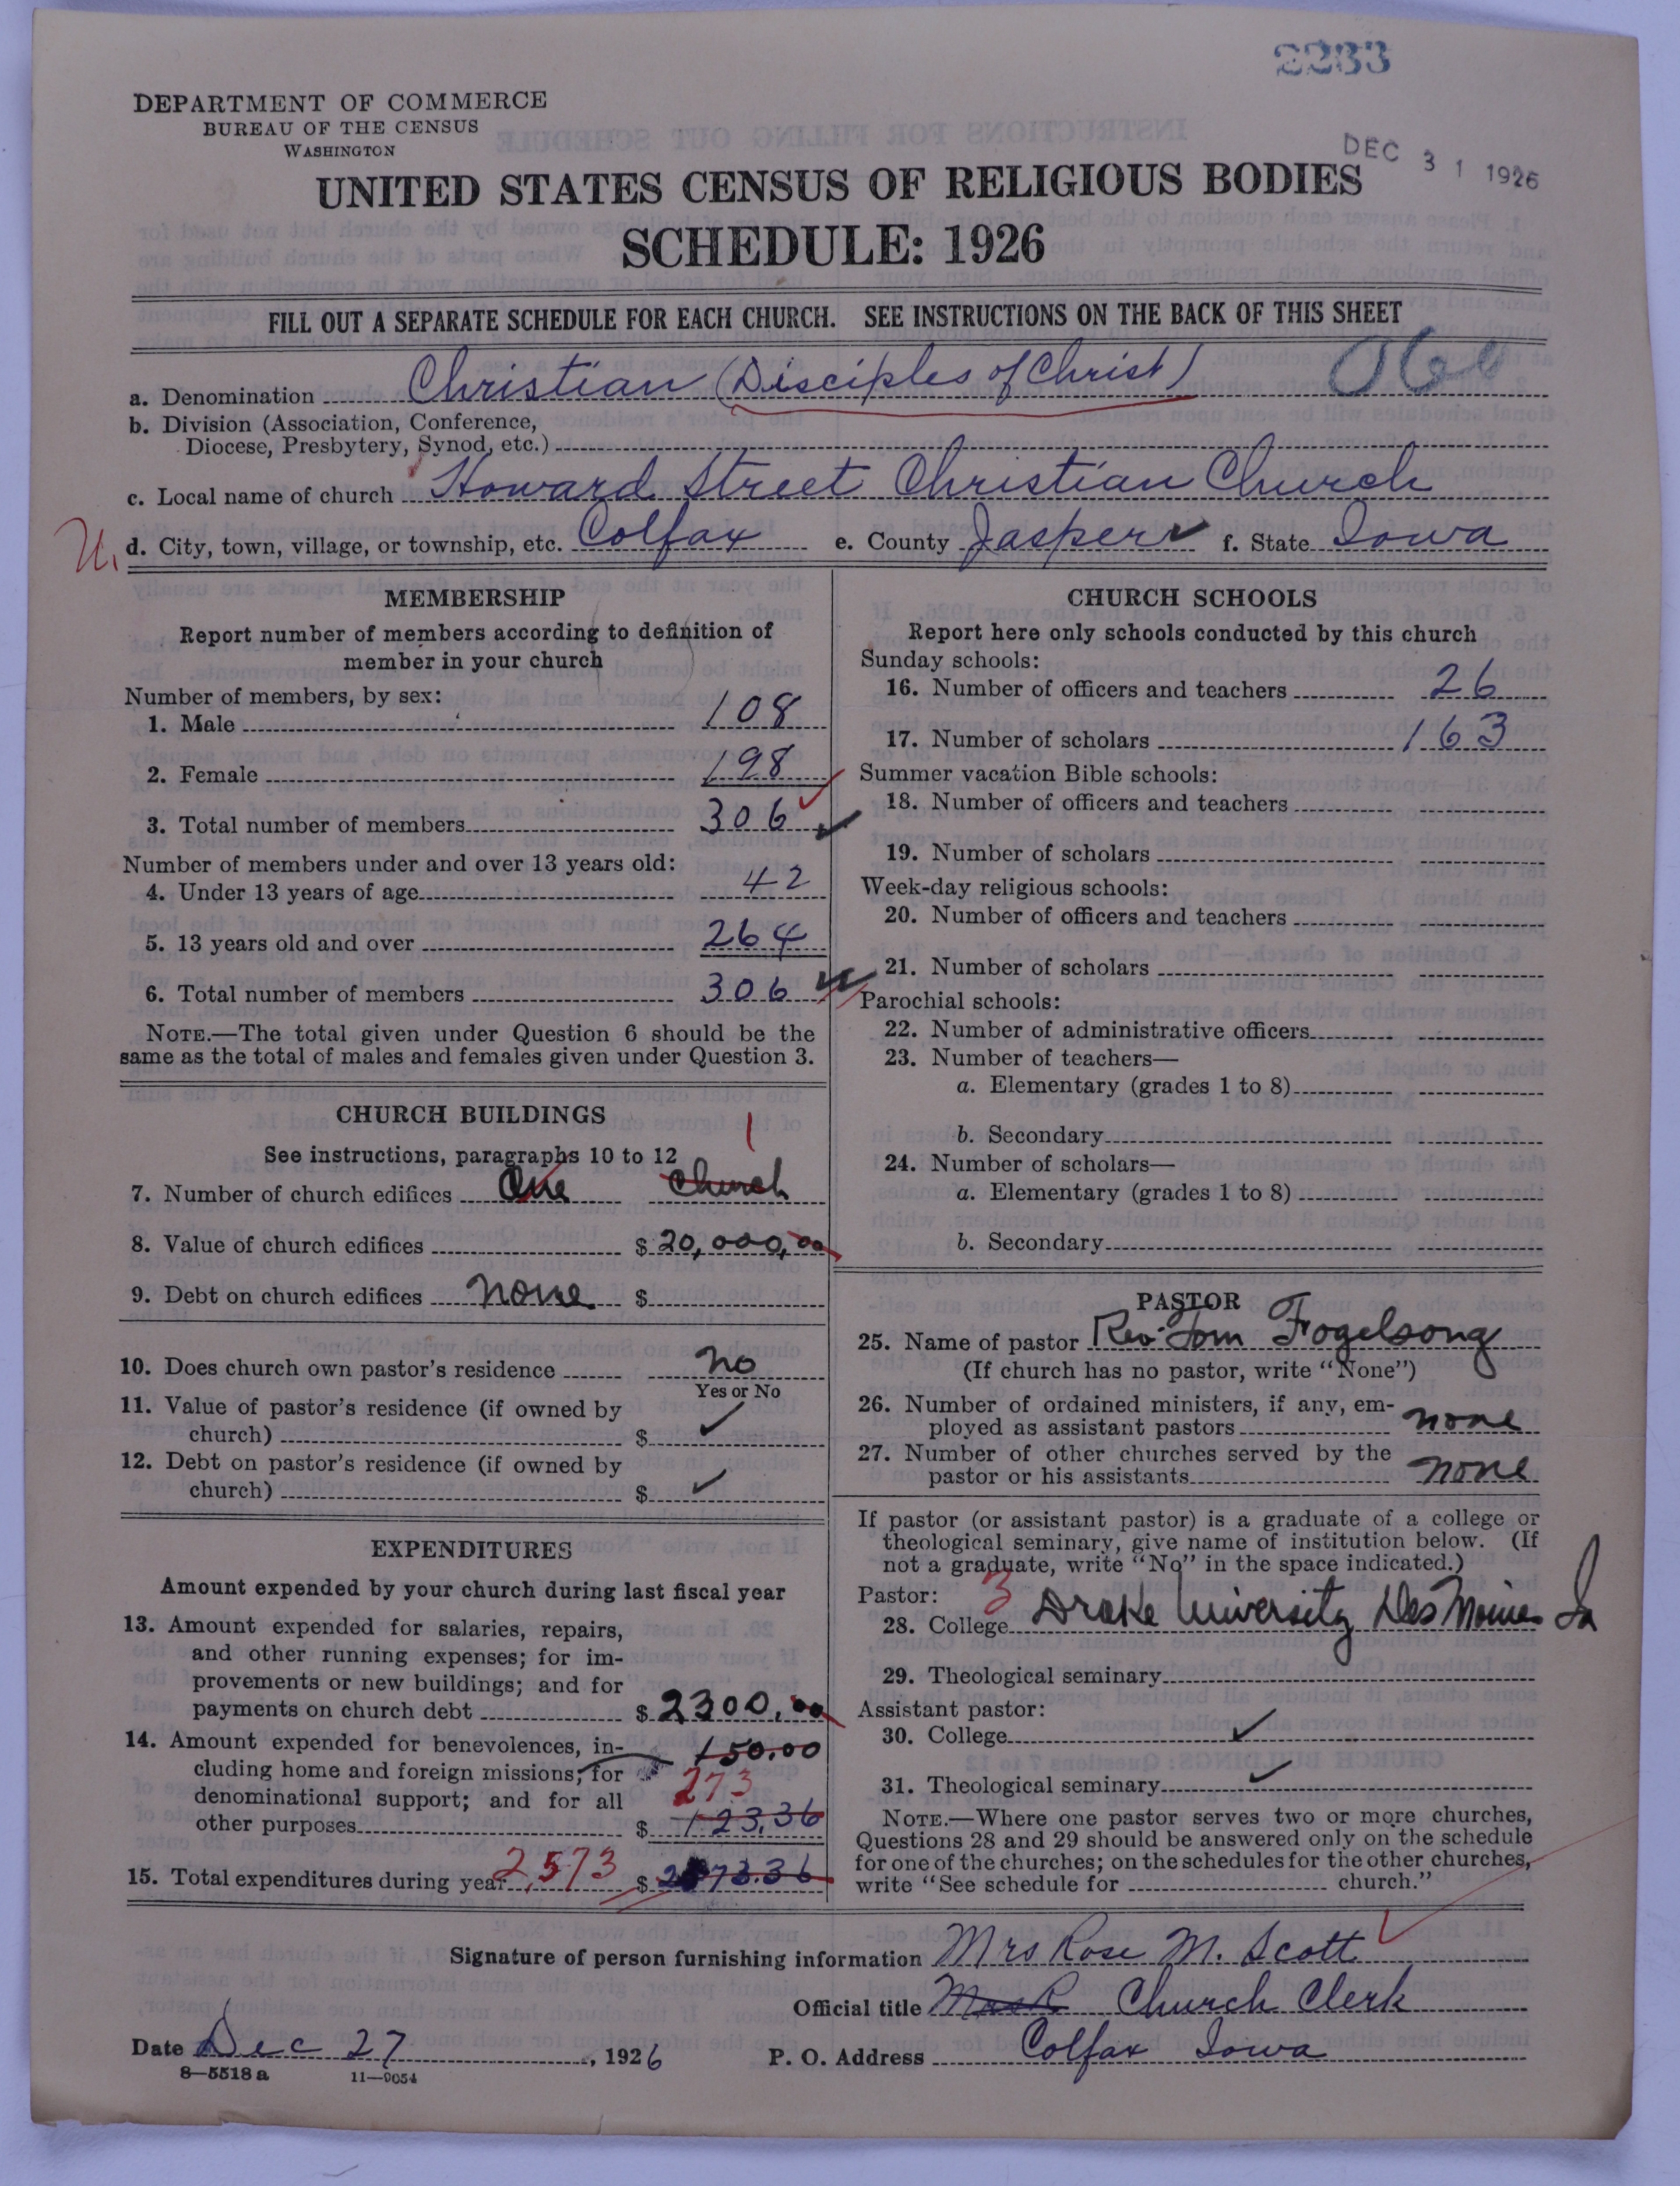 2233
DEPARTMENT OF COMMERCE
BUREAU OF THE CENSUS
WASHINGTON
DEC 31 1926
UNITED STATES CENSUS OF RELIGIOUS BODIES
SCHEDULE: 1926
FILL OUT A SEPARATE SCHEDULE FOR EACH CHURCH. SEE INSTRUCTIONS ON THE BACK OF THIS SHEET
a. Denomination Christian (Disciples of Christ) 066
b. Division (Association, Conference,
Diocese, Presbytery, Synod, etc.)
c. Local name of church Howard Street Christian Church
d. City, town, village, or township, etc. Colfax e. County Jasper f. State Iowa
MEMBERSHIP
Report number of members according to definition of
member in your church
Number of members, by sex:
1. Male 108
2. Female 198
3. Total number of members 306
Number of members under and over 13 years old:
4. Under 13 years of age 42
5. 13 years old and over 264
6. Total number of members 306
NOTE.—The total given under Question 6 should be the
same as the total of males and females given under Question 3.
CHURCH BUILDINGS
See instructions, paragraphs 10 to 12 1
7. Number of church edifices One Church
8. Value of church edifices $ 20,000,00
9. Debt on church edifices none $
10. Does church own pastor's residence no
Yes or No
11. Value of pastor's residence (if owned by
church) $ ✓
12. Debt on pastor's residence (if owned by
church) $ ✓
EXPENDITURES
Amount expended by your church during last fiscal year
13. Amount expended for salaries, repairs,
and other running expenses; for im-
provements or new buildings; and for
payments on church debt $ 2300.00
14. Amount expended for benevolences, in- 150.00
cluding home and foreign missions; for 273
denominational support; and for all
other purposes $ 123.36
15. Total expenditures during year 2,573 $ 2573.36
CHURCH SCHOOLS
Report here only schools conducted by this church
Sunday schools:
16. Number of officers and teachers 26
17. Number of scholars 163
Summer vacation Bible schools:
18. Number of officers and teachers
19. Number of scholars
Week-day religious schools:
20. Number of officers and teachers
21. Number of scholars
Parochial schools:
22. Number of administrative officers
23. Number of teachers—
a. Elementary (grades 1 to 8)
b. Secondary
24. Number of scholars—
a. Elementary (grades 1 to 8)
b. Secondary
PASTOR
25. Name of pastor Rev. Tom Fogelsong
(If church has no pastor, write "None")
26. Number of ordained ministers, if any, em-
ployed as assistant pastors none
27. Number of other churches served by the
pastor or his assistants none
If pastor (or assistant pastor) is a graduate of a college or
theological seminary, give name of institution below. (If
not a graduate, write "No" in the space indicated.)
Pastor: 3
28. College Drake University Des Moines Ia
29. Theological seminary
Assistant pastor:
30. College ✓
31. Theological seminary ✓
NOTE.—Where one pastor serves two or more churches,
Questions 28 and 29 should be answered only on the schedule
for one of the churches; on the schedules for the other churches,
write "See schedule for church."
Signature of person furnishing information Mrs Rose M. Scott
Official title Church Clerk
Date Dec 27, 1926 P. O. Address Colfax Iowa
8—5518a 11—9054